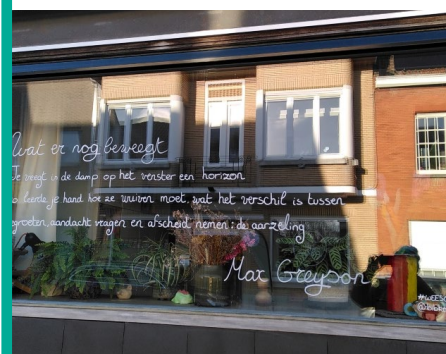 wat er nog beweegt
Je veegt in de damp op het venster een horizon
zo leerde je hand hoe ze wuiven moet, wat het verschil is tussen
begroeten, aandacht vragen en afscheid nemen: de aarzeling
Max Greyson